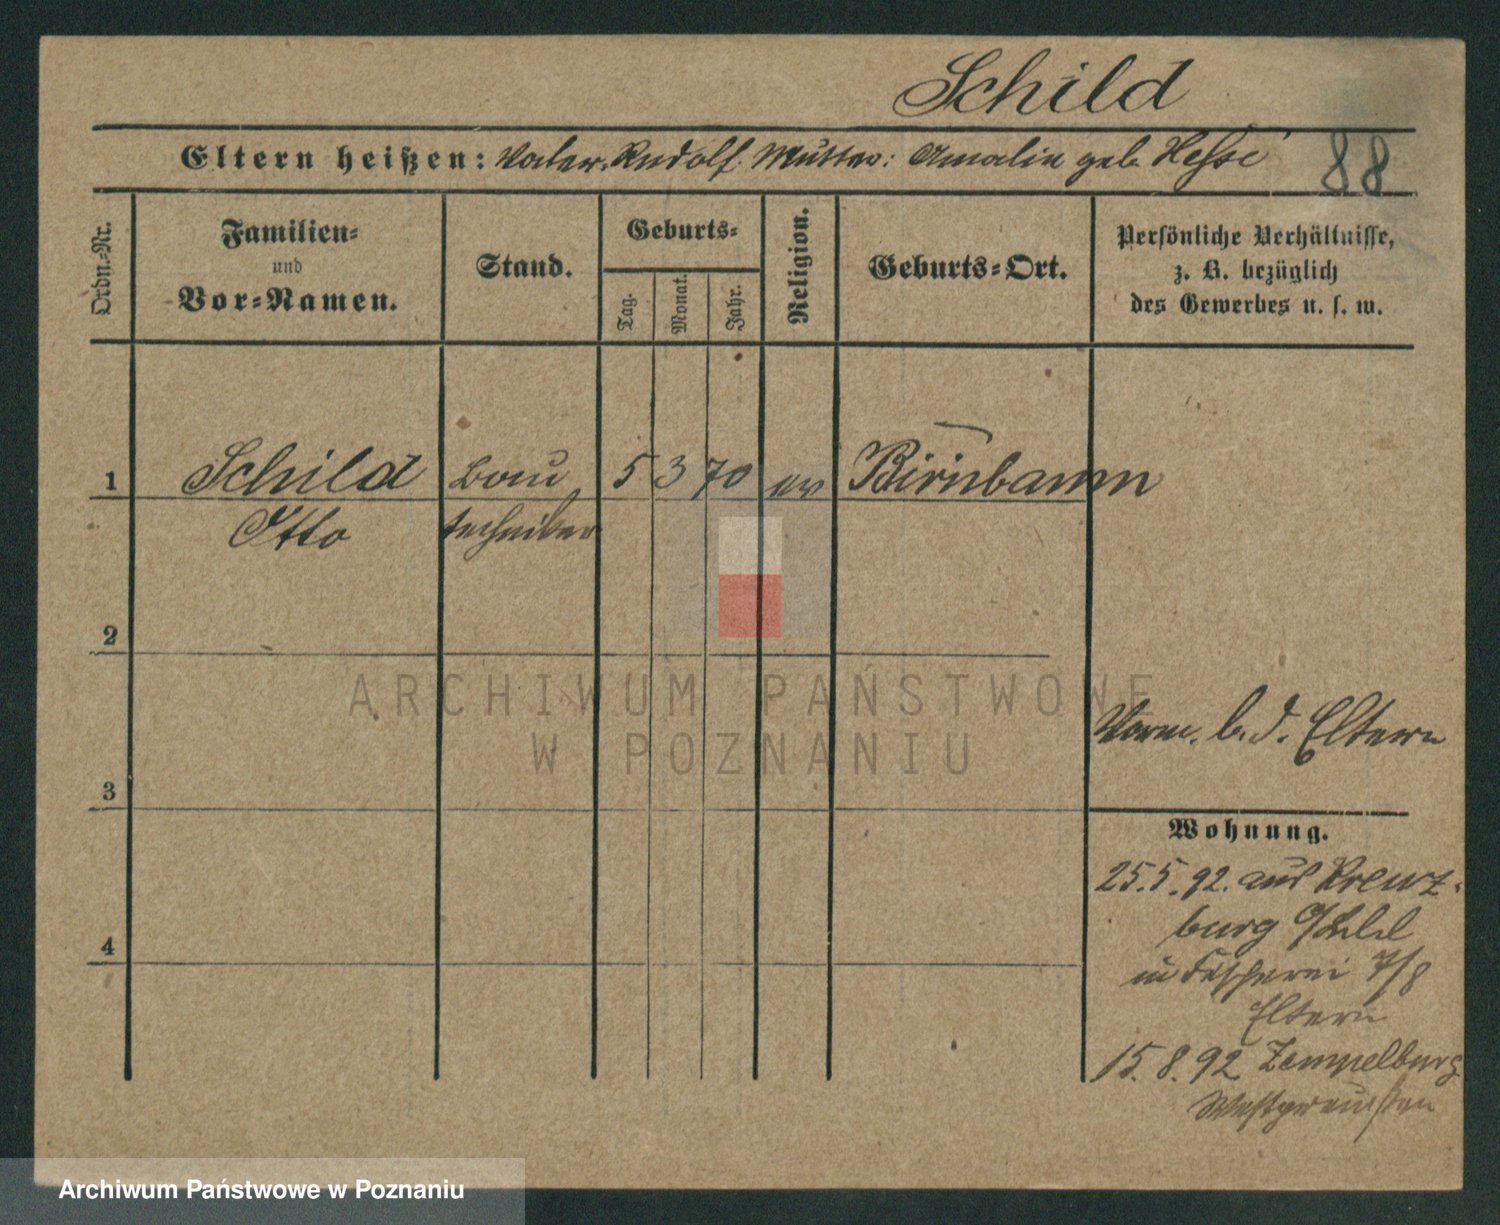 Schild
Eltern heißen: Vater. Rudolf. Mutter: Amalie geb. Hesse
88
Ordn.-Nr.
Familien-
und
Vor-Namen.
Stand.
Geburts-
Tag.
Monat.
Jahr.
Religion.
Geburts-Ort.
Persönliche Verhältnisse,
z. B. bezüglich
des Gewerbes u. s. w.
1 Schild Bau 5 3 70 ev Birnbaum
Otto techniker
2
3
4
ARCHIWUM PAŃSTWOWE
W POZNANIU
b. d. Eltern
Wohnung.
25.5.92. aus Kreuz-
burg
in Fischerei 7/8
Eltern
15.8.92 Zempelburg
Westpreußen
Archiwum Państwowe w Poznaniu